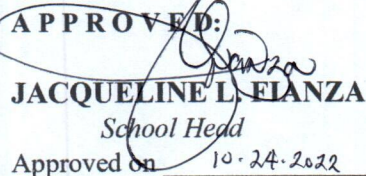 APPROVED:
JACQUELINE L. FIANZA
School Head
Approved on 10-24-2022